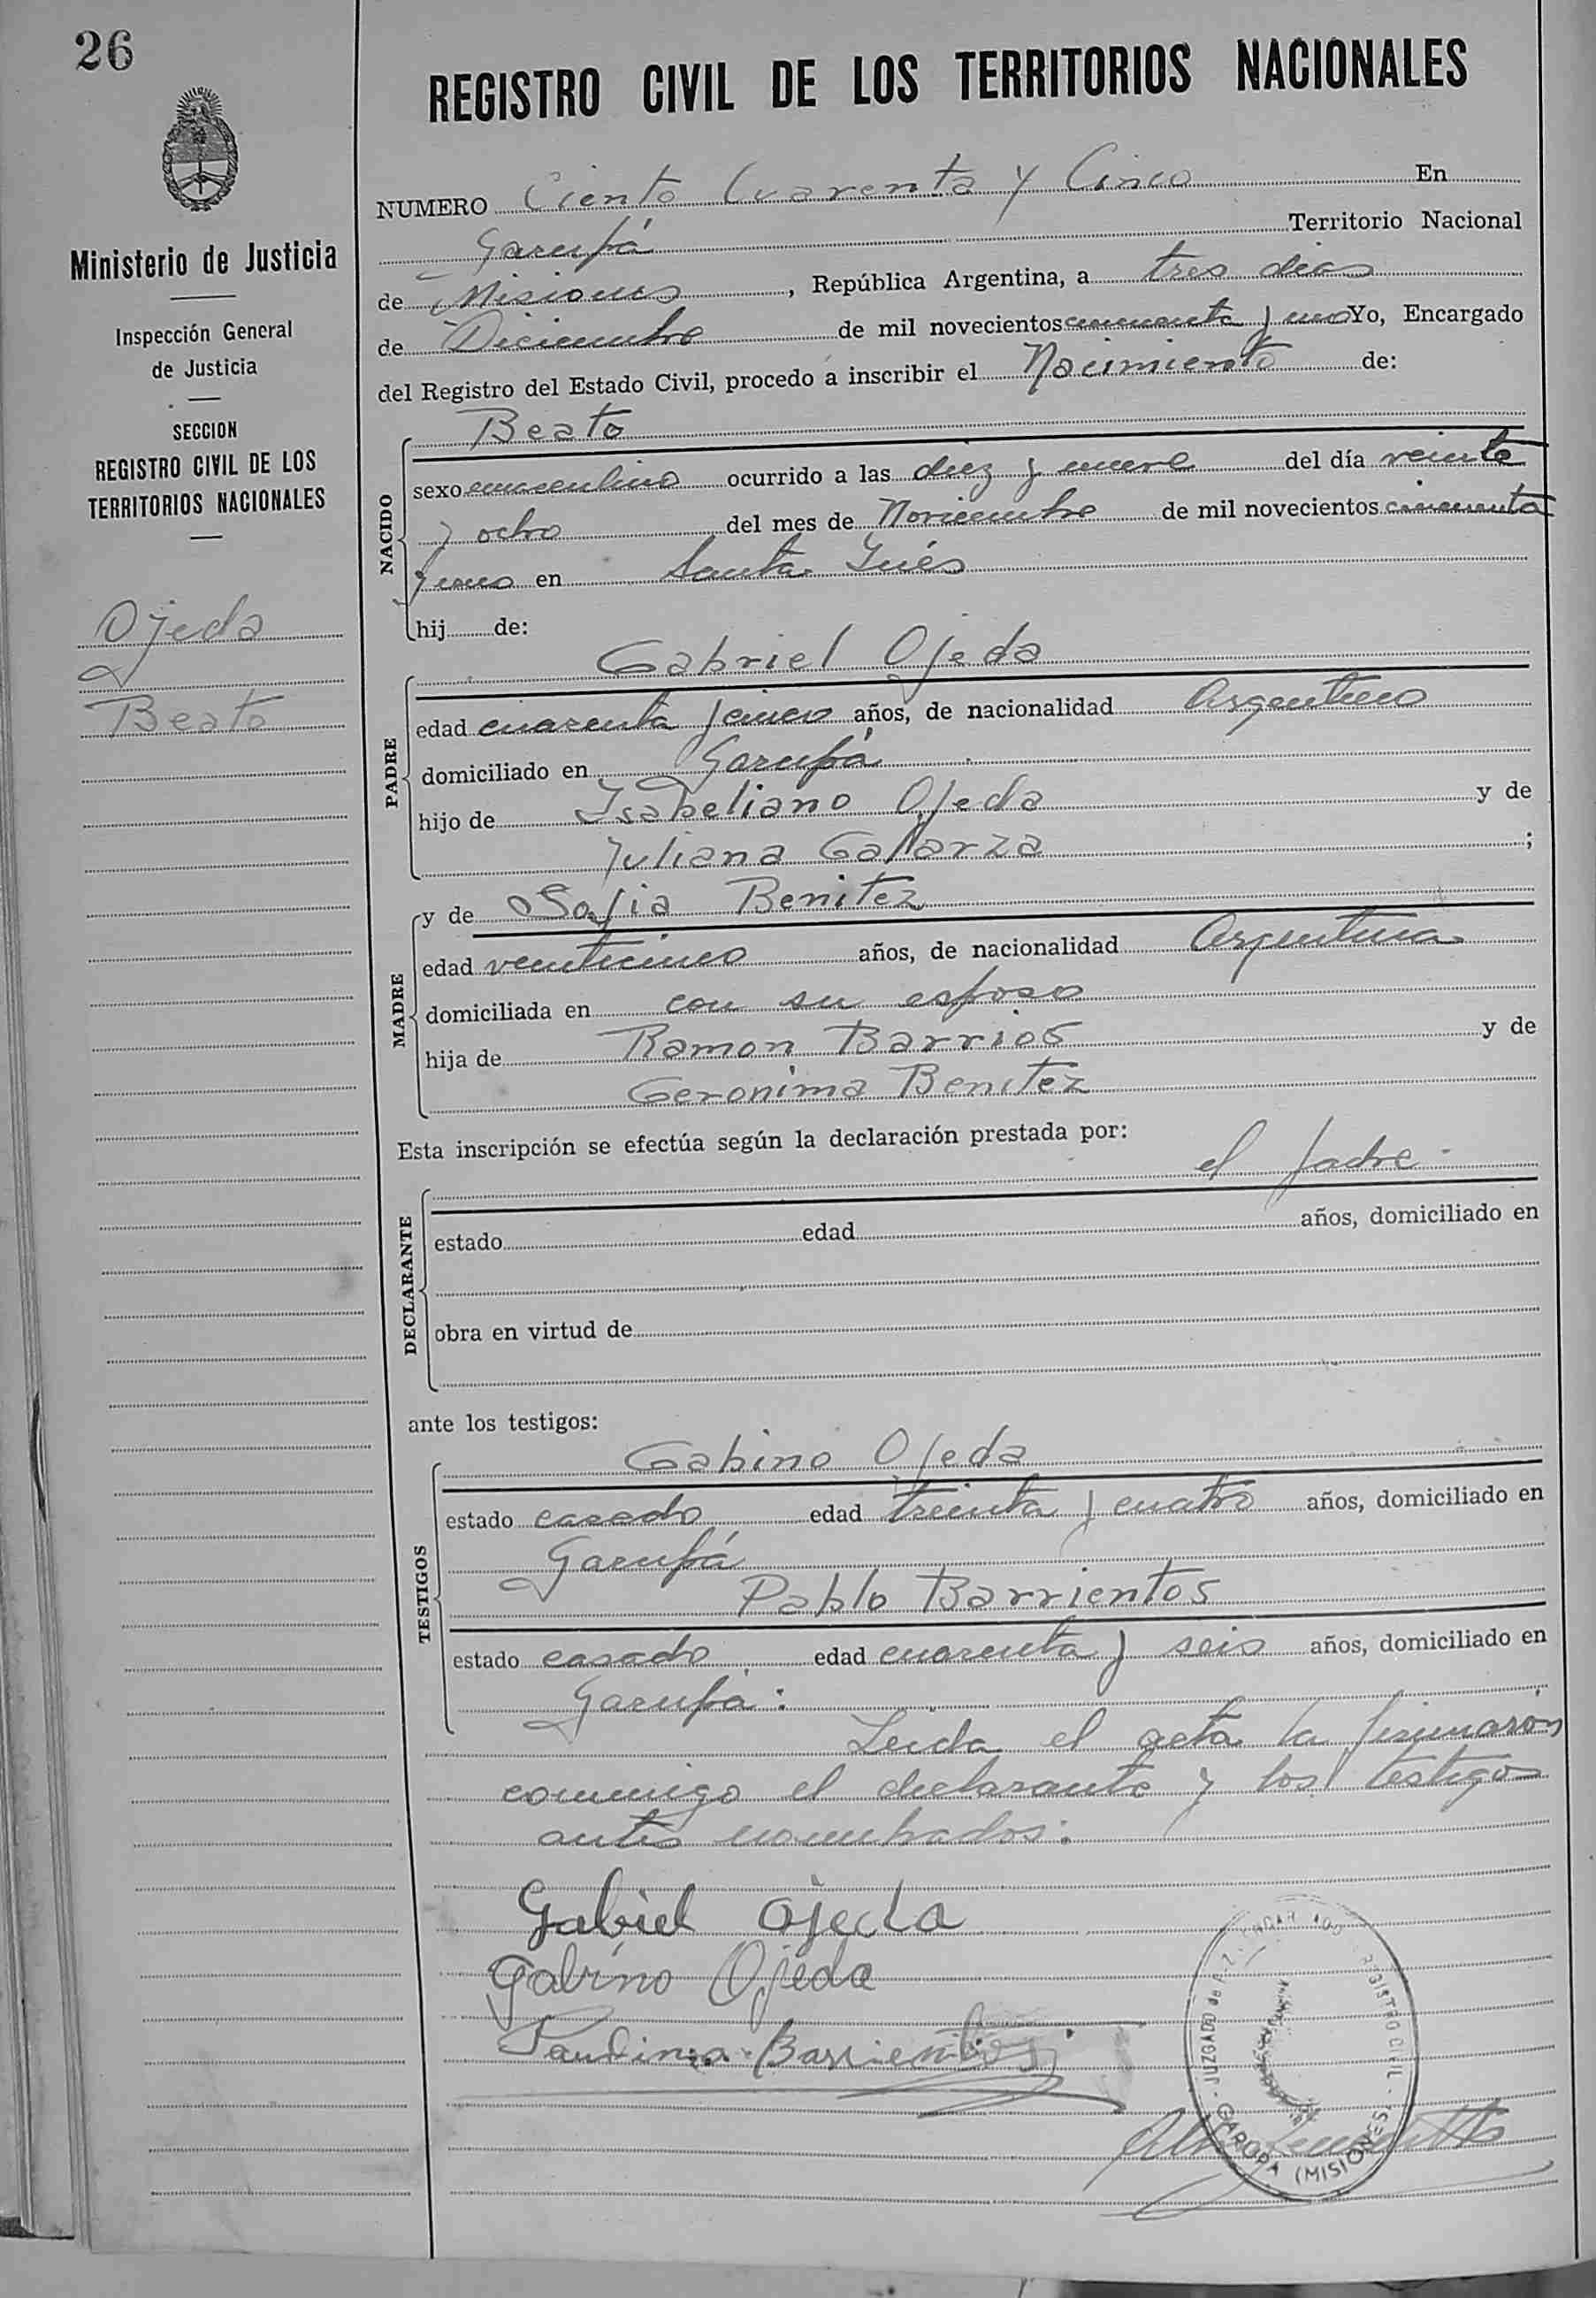 26
Ministerio de Justicia
Inspección General
de Justicia
SECCION
REGISTRO CIVIL DE LOS
TERRITORIOS NACIONALES
Ojeda
Beato
REGISTRO CIVIL DE LOS TERRITORIOS NACIONALES
NUMERO Ciento Cuarenta y Cinco En
Garupá Territorio Nacional
de Misiones, República Argentina, a tres dias
de Diciembre de mil novecientos cincuenta y uno Yo, Encargado
del Registro del Estado Civil, procedo a inscribir el Nacimiento de:
NACIDO
Beato
sexo masculino ocurrido a las diez y nueve del día veinte
y ocho del mes de Noviembre de mil novecientos cincuenta
y uno en Santa Inés
hij de:
PADRE
Gabriel Ojeda
edad cuarenta y cinco años, de nacionalidad Argentino
domiciliado en Garupá
hijo de Isabeliano Ojeda y de
Juliana Gallarza ;
MADRE
y de Sofia Benitez
edad veinticinco años, de nacionalidad Argentina
domiciliada en con su esposo
hija de Ramon Barrios y de
Geronima Benitez
Esta inscripción se efectúa según la declaración prestada por:
DECLARANTE
el padre
estado edad años, domiciliado en
obra en virtud de
ante los testigos:
TESTIGOS
Gabino Ojeda
estado casado edad treinta y cuatro años, domiciliado en
Garupá
Pablo Barrientos
estado casado edad cuarenta y seis años, domiciliado en
Garupá:
Leida el acta la firmaron
conmigo el declarante y los testigos
antes nombrados:
Gabiel Ojeda
Gabino Ojeda
Barrientos
JUZGADO de PAZ REGISTRO CIVIL
GARUPA (MISIONES)